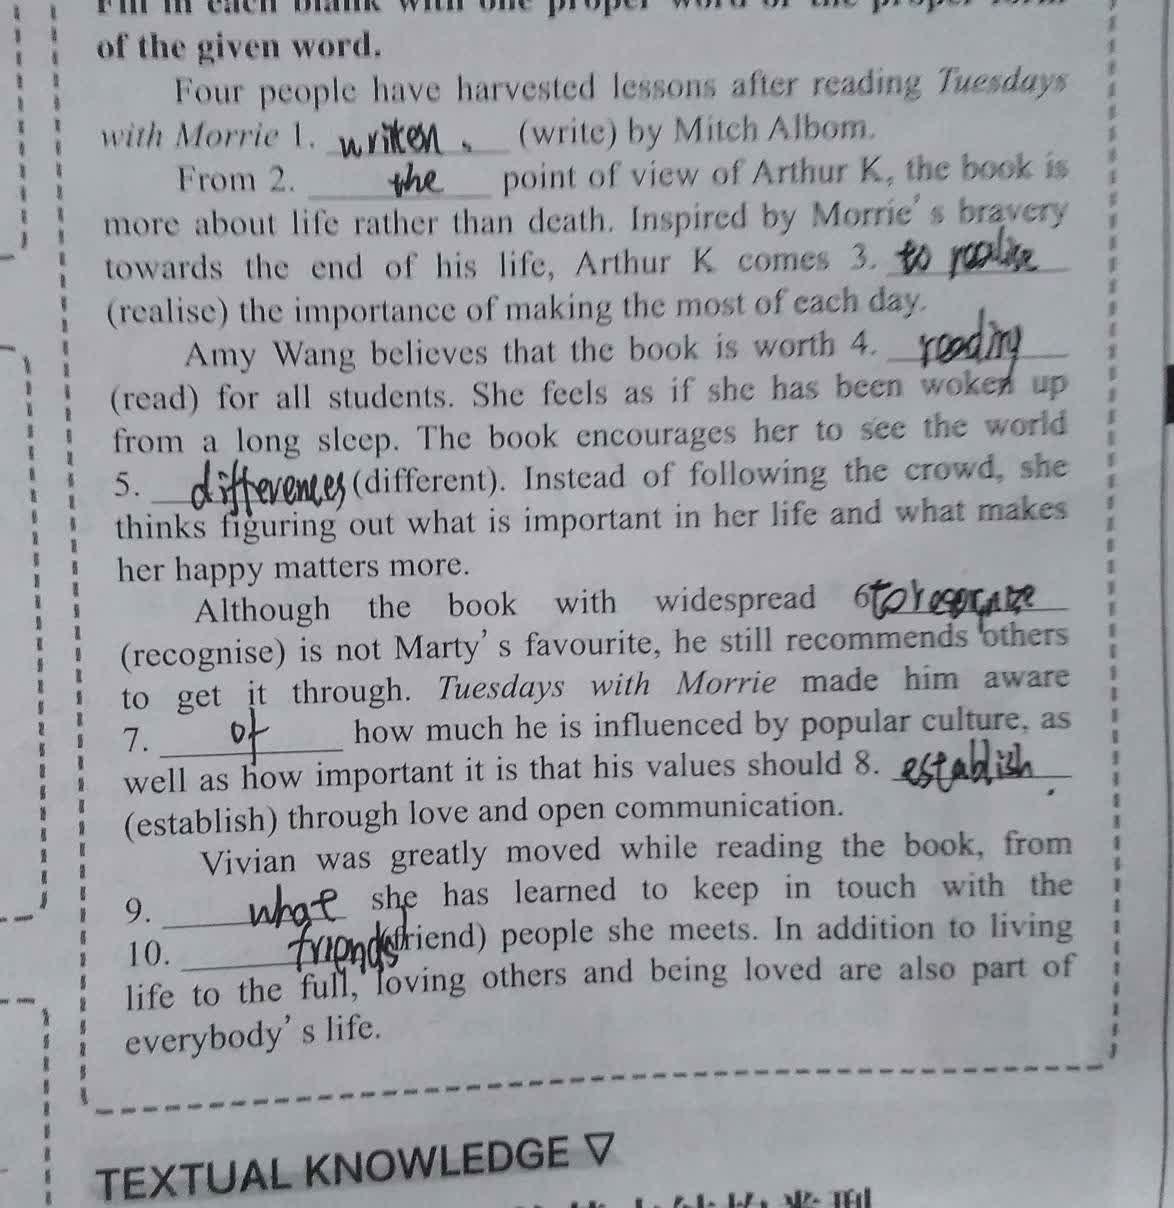 of the given word.
Four people have harvested lessons after reading Tuesdays
with Morrie 1. writen. (write) by Mitch Albom.
From 2. the point of view of Arthur K, the book is
more about life rather than death. Inspired by Morrie's bravery
towards the end of his life, Arthur K comes 3. to realise
(realise) the importance of making the most of each day.
Amy Wang believes that the book is worth 4. reading
(read) for all students. She feels as if she has been woken up
from a long sleep. The book encourages her to see the world
5. differences (different). Instead of following the crowd, she
thinks figuring out what is important in her life and what makes
her happy matters more.
Although the book with widespread 6
(recognise) is not Marty's favourite, he still recommends others
to get it through. Tuesdays with Morrie made him aware
7. of how much he is influenced by popular culture, as
well as how important it is that his values should 8. establish
(establish) through love and open communication.
Vivian was greatly moved while reading the book, from
9. what she has learned to keep in touch with the
10. friends (friend) people she meets. In addition to living
life to the full, loving others and being loved are also part of
everybody's life.
TEXTUAL KNOWLEDGE ▽